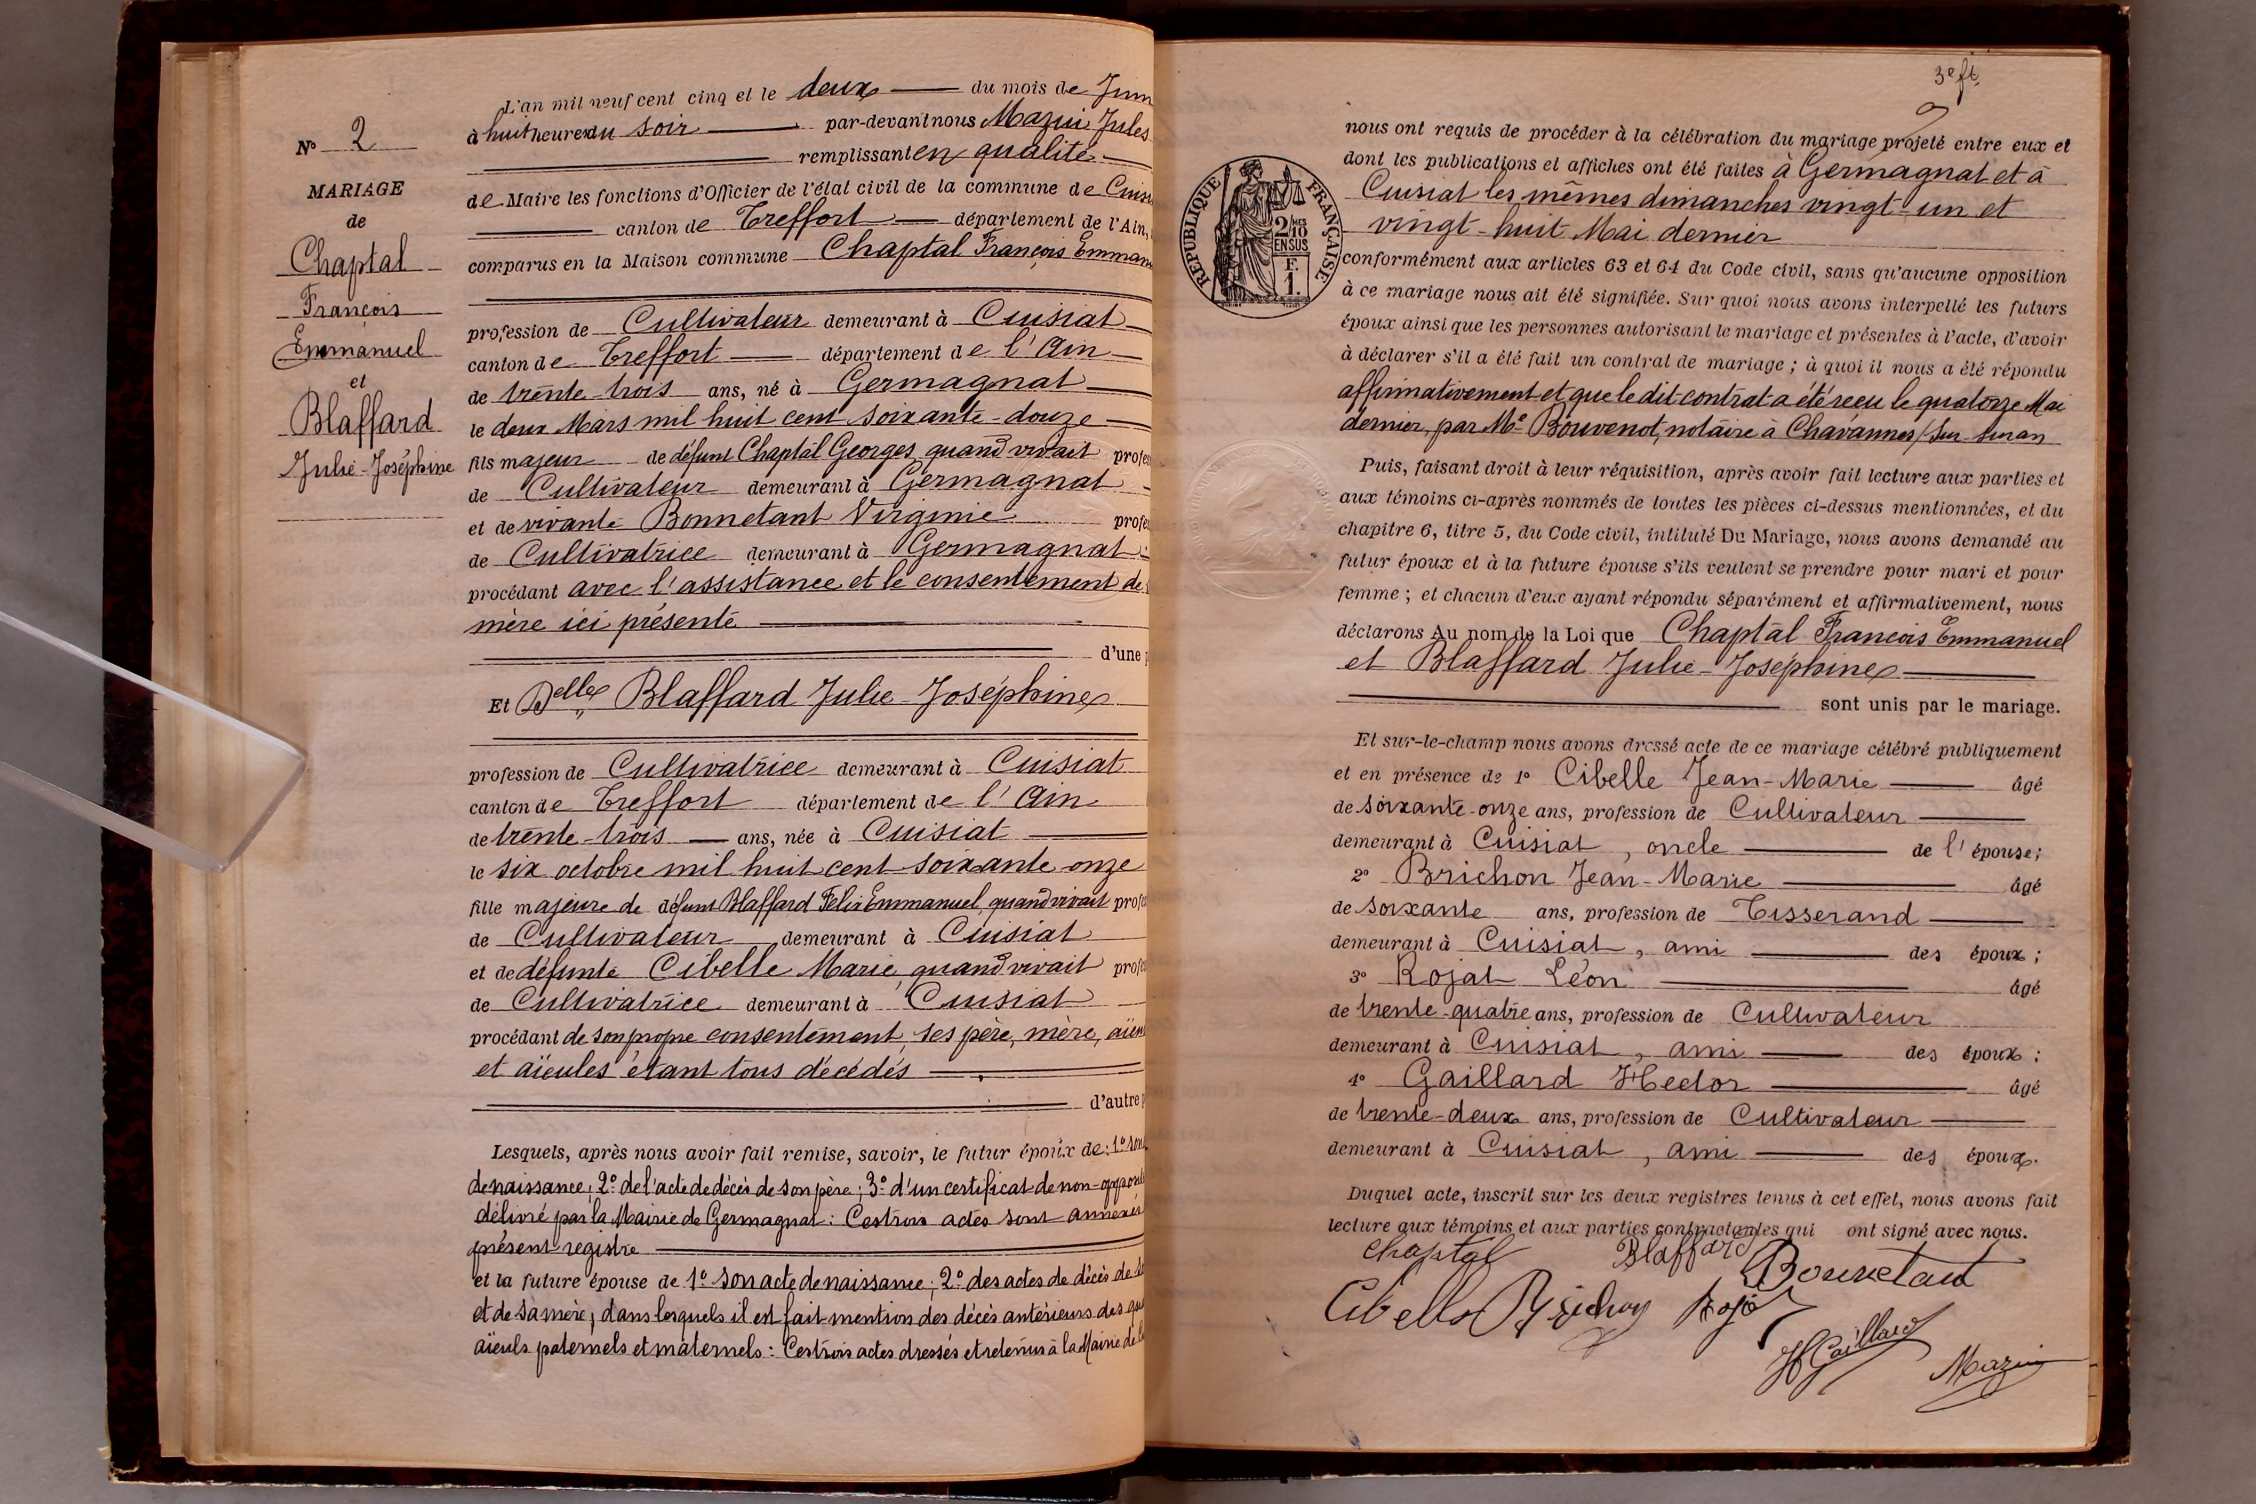 N° 2
MARIAGE
de
Chaptal
François
Emmanuel
et
Blaffard
Julie-Joséphine
L'an mil neuf cent cinq et le deux du mois de Juin
à huit heures du soir par-devant nous Mazui Jules
remplissant en qualité
de Maire les fonctions d'Officier de l'état civil de la commune de Cuisi
canton de Treffort département de l'Ain,
comparus en la Maison commune Chaptal François Emman
profession de Cultivateur demeurant à Cuisiat
canton de Treffort département de l'Ain
de trente trois ans, né à Germagnat
le deux Mars mil huit cent soixante-douze
fils majeur de défunt Chaptal Georges quand vivait profes
de Cultivateur demeurant à Germagnat
et de vivante Bonnetant Virginie profes
de Cultivatrice demeurant à Germagnat
procédant avec l'assistance et le consentement de
mère ici présente
d'une p
Et Delle Blaffard Julie-Joséphine
profession de Cultivatrice demeurant à Cuisiat
canton de Treffort département de l'Ain
de trente-trois ans, née à Cuisiat
le six octobre mil huit cent soixante onze
fille majeure de défunt Blaffard Felix Emmanuel, quand vivait profes
de Cultivateur demeurant à Cuisiat
et de défunte Cibelle Marie, quand vivait profes
de Cultivatrice demeurant à Cuisiat
procédant de son propre consentement, ses père, mère, aïeu
et aïeules étant tous décédés
d'autre p
Lesquels, après nous avoir fait remise, savoir, le futur époux de : 1° son
de naissance ; 2° de l'acte de décès de son père ; 3° d'un certificat de non-opposi
délivré par la Mairie de Germagnat : Ces trois actes sont annexés
présent registre
et la future épouse de 1° son acte de naissance ; 2° des actes de décès de s
et de sa mère, dans lesquels il est fait mention des décès antérieurs des
aïeuls paternels et maternels : Ces trois actes dressés et retenus à la Mairie de
3e ft.
nous ont requis de procéder à la célébration du mariage projeté entre eux et
dont les publications et affiches ont été faites à Germagnat et à
Cuisiat les mêmes dimanches vingt-un et
vingt-huit Mai dernier
conformément aux articles 63 et 64 du Code civil, sans qu'aucune opposition
à ce mariage nous ait été signifiée. Sur quoi nous avons interpellé les futurs
époux ainsi que les personnes autorisant le mariage et présentes à l'acte, d'avoir
à déclarer s'il a été fait un contrat de mariage ; à quoi il nous a été répondu
affirmativement et que le dit contrat a été reçu le quatorze Mai
dernier, par Me Bouvenot, notaire à Chavannes/Sur-Suran
RÉPUBLIQUE FRANÇAISE
2/10 EN SUS
F.
1.
Puis, faisant droit à leur réquisition, après avoir fait lecture aux parties et
aux témoins ci-après nommés de toutes les pièces ci-dessus mentionnées, et du
chapitre 6, titre 5, du Code civil, intitulé Du Mariage, nous avons demandé au
futur époux et à la future épouse s'ils veulent se prendre pour mari et pour
femme ; et chacun d'eux ayant répondu séparément et affirmativement, nous
déclarons Au nom de la Loi que Chaptal François Emmanuel
et Blaffard Julie-Joséphine
sont unis par le mariage.
Et sur-le-champ nous avons dressé acte de ce mariage célébré publiquement
et en présence de 1° Cibelle Jean-Marie âgé
de soixante-onze ans, profession de Cultivateur
demeurant à Cuisiat, oncle de l'épouse ;
2° Brichon Jean-Marie âgé
de soixante ans, profession de Tisserand
demeurant à Cuisiat, ami des époux ;
3° Rojat Léon âgé
de trente-quatre ans, profession de Cultivateur
demeurant à Cuisiat, ami des époux ;
4° Gaillard Hector âgé
de trente-deux ans, profession de Cultivateur
demeurant à Cuisiat, ami des époux.
Duquel acte, inscrit sur les deux registres tenus à cet effet, nous avons fait
lecture aux témoins et aux parties contractantes qui ont signé avec nous.
Chaptal Blaffard Bonnetant
Cibelle Brichon Rojat
H Gaillard Mazui